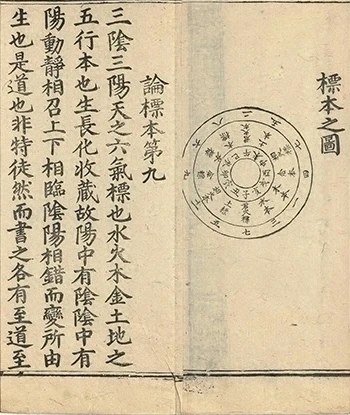 標本之圖
論標本第九
三陰三陽天之六氣標也水火木金土地之
五行本也生長化收藏故陽中有陰陰中有
陽動靜相召上下相臨陰陽相錯而變所由
生也是道也非特徒然而書之各有至道至